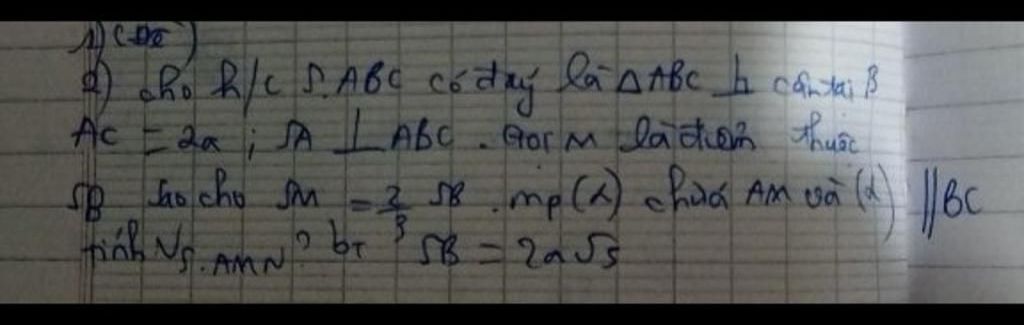 1)
2) cho h/c S.ABC có đáy là △ABC ⊥ cân tại B
AC = 2a ; SA ⊥ ABC . Gọi M là điểm thuộc
SB sao cho SM = 2/3 SB . mp (α) chứa AM và (α) // BC
tính V S.AMN ? bt SB = 2a√5